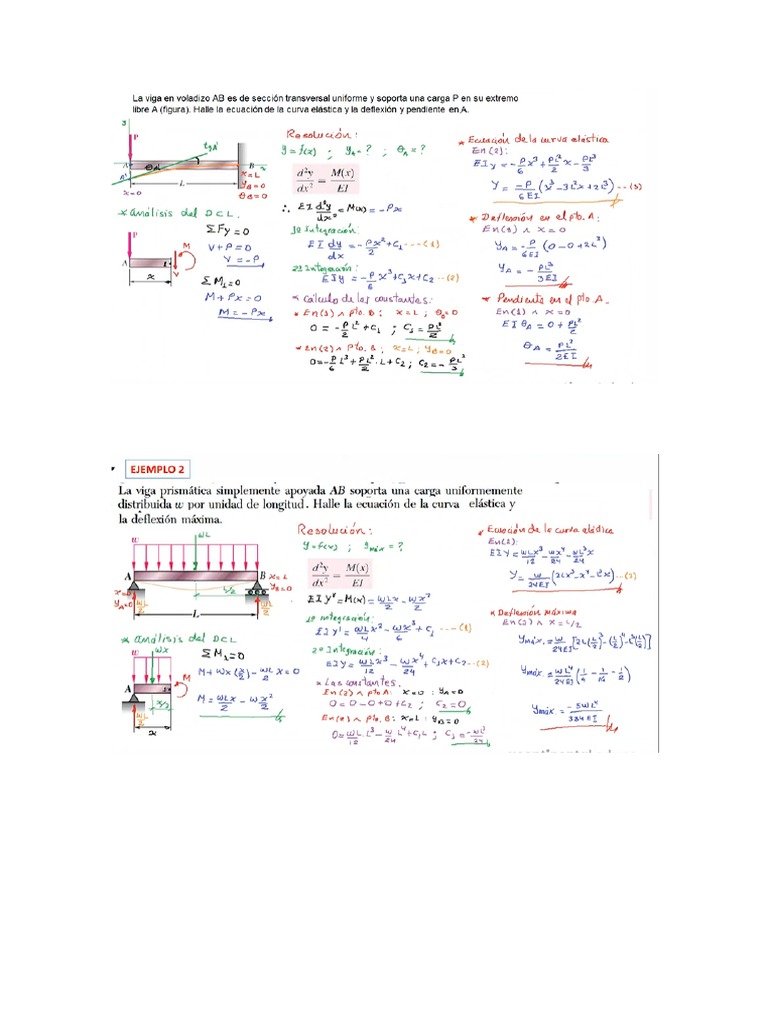 La viga en voladizo AB es de sección transversal uniforme y soporta una carga P en su extremo
libre A (figura). Halle la ecuación de la curva elástica y la deflexión y pendiente en A.
y
P
A
A'
θA'
tgA'
B
x
x=0
L
x=L
yB=0
θB=0
* Análisis del D C L.
P
A
M
V
x
ΣFy=0
V+P=0
V=-P
ΣM1=0
M+Px=0
M=-Px
Resolución:
y=f(x) ; yA=? ; θA=?
d²y/dx² = M(x)/EI
∴ EI d²y/dx² = M(x) = -Px
1º Integración:
EI dy/dx = -Px²/2 + C1 ---(1)
2º Integración:
EIy = -P/6 x³ + C1x + C2 --(2)
* Cálculo de las constantes:
* En(1) ∧ pto. B ; x=L ; θB=0
0 = -P/2 L² + C1 ; C1 = PL²/2
* En(2) ∧ pto. B ; x=L ; yB=0
0 = -P/6 L³ + PL²/2 · L + C2 ; C2 = -PL³/3
* Ecuación de la curva elástica
En(2):
EIy = -P/6 x³ + PL²/2 x - PL³/3
Y = -P/6EI (x³ - 3L²x + 2L³) --(3)
* Deflexión en el pto. A:
En(3) ∧ x=0
YA = -P/6EI (0 - 0 + 2L³)
YA = -PL³/3EI
* Pendiente en el pto A.
En(1) ∧ x=0
EIθA = 0 + PL²/2
θA = PL²/2EI
EJEMPLO 2
La viga prismática simplemente apoyada AB soporta una carga uniformemente
distribuida w por unidad de longitud. Halle la ecuación de la curva elástica y
la deflexión máxima.
w
wL
A
B
x=0
yA=0
wL/2
L/2
L
x=L
yB=0
wL/2
* Análisis del DCL
w
wx
A
M
wL/2
x/2
x
ΣM1=0
M + wx(x/2) - wL/2 x = 0
M = wLx/2 - wx²/2
Resolución:
y=f(x) ; ymáx=?
d²y/dx² = M(x)/EI
EIY'' = M(x) = wLx/2 - wx²/2
1º integración:
EIY' = wLx²/4 - wx³/6 + C1 ---(1)
2º Integración:
EIY = wLx³/12 - wx⁴/24 + C1x + C2 --(2)
* Las constantes.
En(2) ∧ pto A: x=0 : yA=0
0 = 0 - 0 + 0 + C2 ; C2=0
En(2) ∧ pto. B: x=L : yB=0
0 = wL/12 L³ - w/24 L⁴ + C1L ; C1 = -wL³/24
* Ecuación de la curva elástica
En(2):
EIY = wLx³/12 - wx⁴/24 - wL³x/24
Y = w/24EI (2Lx³ - x⁴ - L³x) --(3)
* Deflexión máxima
En(3) ∧ x=L/2
Ymáx. = w/24EI [2L(L/2)³ - (L/2)⁴ - L³(L/2)]
Ymáx. = wL⁴/24EI (1/4 - 1/16 - 1/2)
Ymáx. = -5wL⁴/384EI